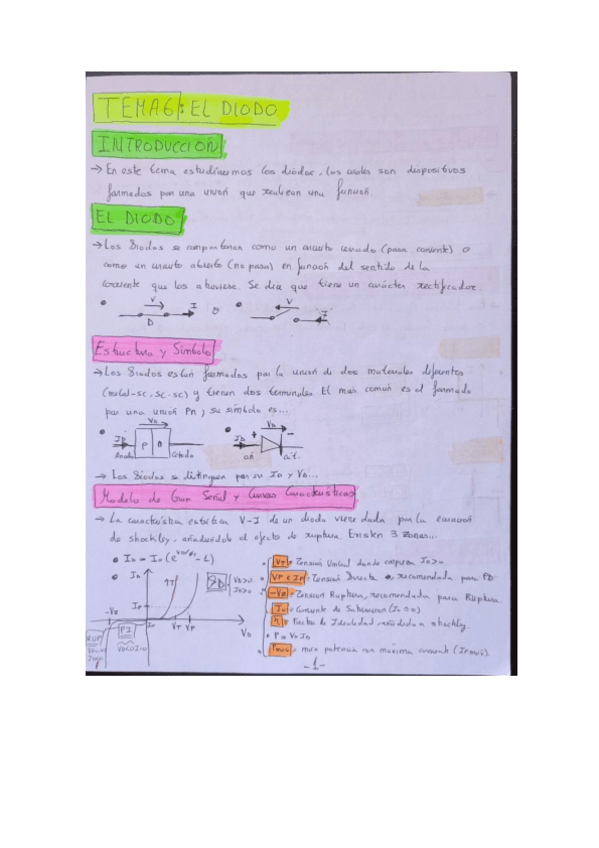 TEMA6: EL DIODO
INTRODUCCIÓN
→ En este tema estudiaremos los diodos, los cuales son dispositivos
formados por una unión que realizan una función.
EL DIODO
→ Los Diodos se comportan como un circuito cerrado (pasa corriente) o
como un circuito abierto (no pasa) en función del sentido de la
corriente que los atraviese. Se dice que tiene un carácter rectificador.
V I o V I
D
Estructura y Símbolo
→ Los Diodos están formados por la unión de dos materiales diferentes
(metal-sc, sc-sc) y tienen dos terminales. El mas común es el formado
por una unión Pn, su símbolo es...
VD VD
ID P n ID + -
Anodo Catodo
→ Los Diodos se distinguen por su ID y VD...
Modelo de Gran Señal y Curvas Características
→ La característica estática V-I de un diodo viene dada por la ecuación
de shockley, añadiendole el efecto de ruptura. Existen 3 zonas...
VT = Tensión Umbral donde empieza ID>0
ID
-VB = Tension Ruptura, recomendada para Ruptura
Io = Corriente de Saturacion
n = Factor de Idealidad
P = VD ID
VT VP VD
-1-